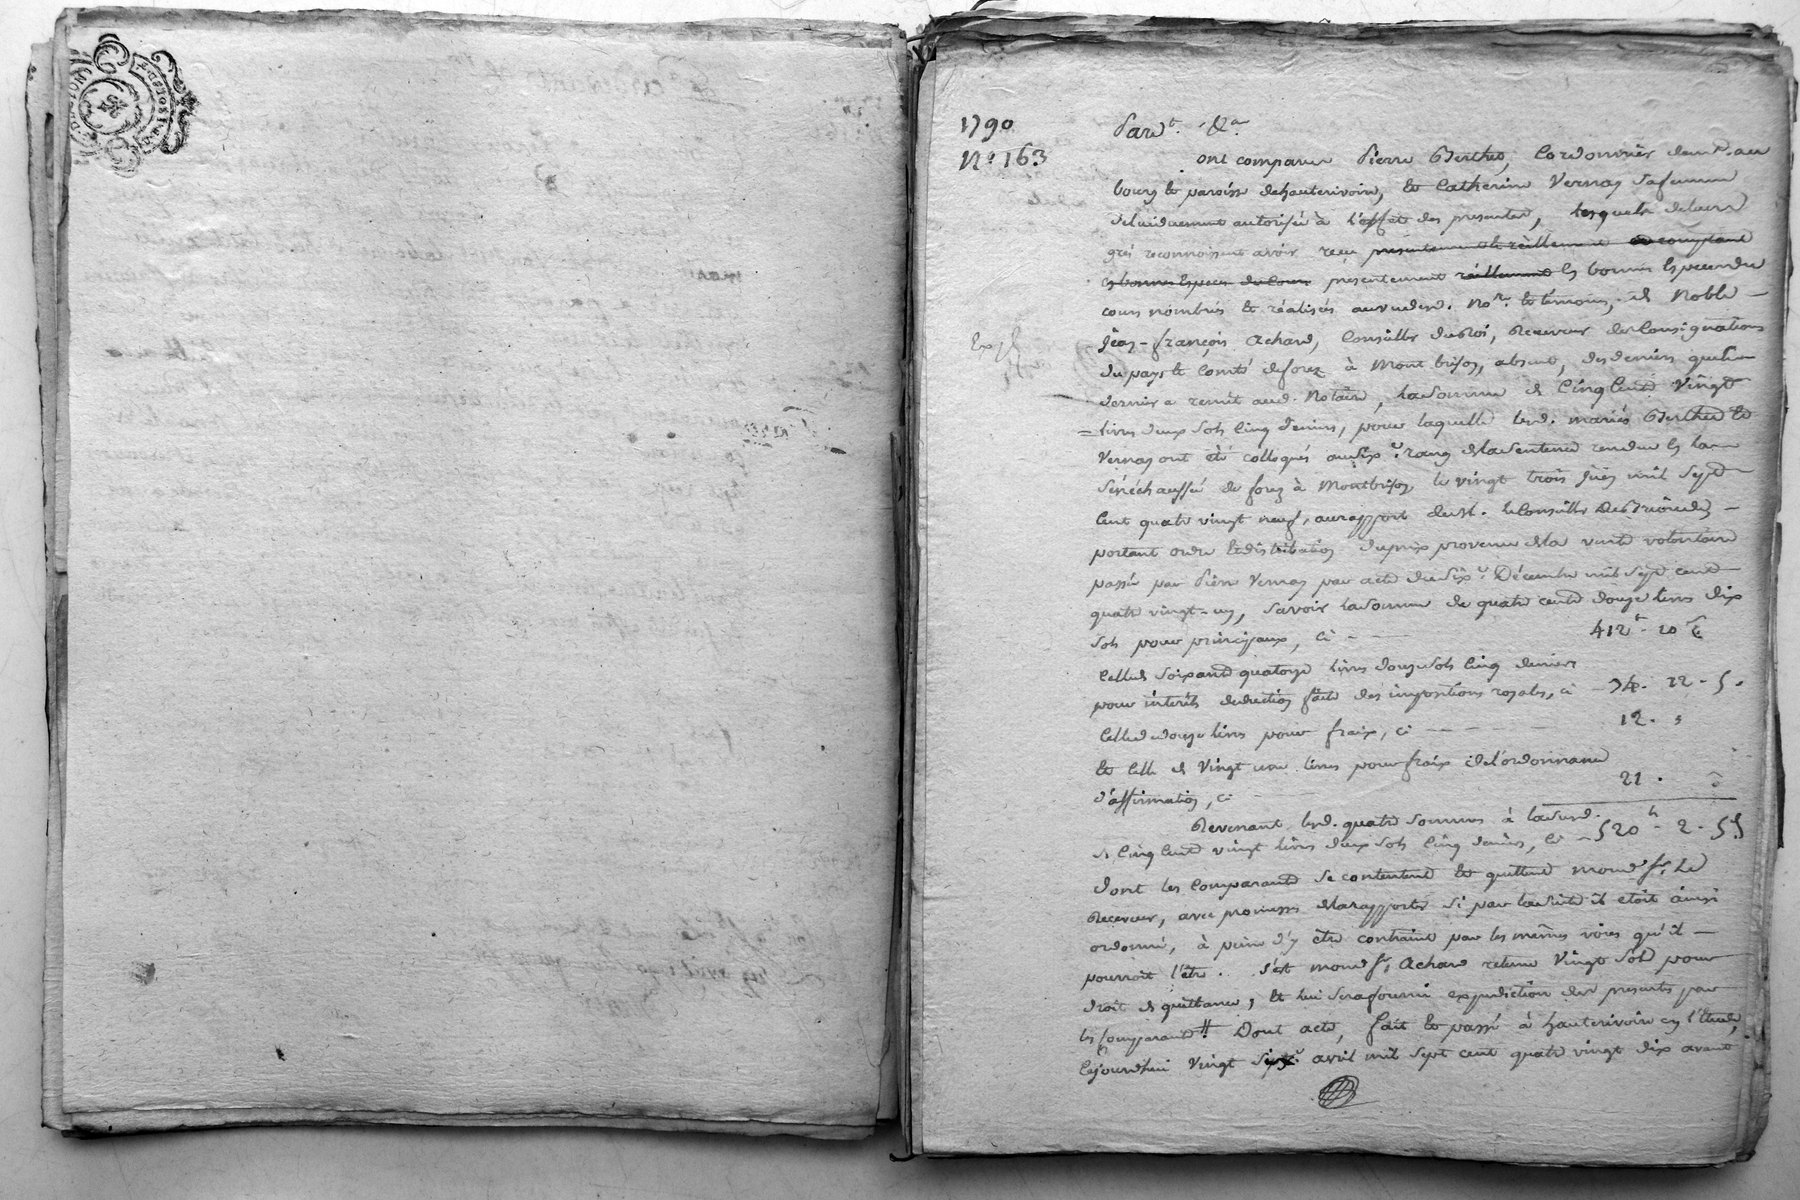 1790
N.° 163
Pard.t &a
ont comparu Pierre Berthet, Cordonnier dem.t au
bourg et paroisse de hauterivoire, et Catherine Vernay sa femme
de lui duement autorisée à l'effet des presentes, lesquels de leurs
grés reconnoissent avoir reçu presentement et réellement comptant
es bonnes especes de cours presentement réellement en bonnes especes du
cours nombrés et réalisés au vu des d. No.re et témoins, de Noble
Jean-françois Achard, Conseiller du Roi, Receveur des Consignations
du pays et Comté de forez à Montbrison, absent, des deniers que ce
dernier a remit aud. Notaire, la somme de Cinq Cent Vingt
livres deux sols cinq deniers, pour laquelle lesd. mariés Berthet et
Vernay ont été colloqués au six.e rang de la sentence rendue en la
sénéchaussée de forez à Montbrison le vingt trois juin mil sept
Cent quatre vingt neuf, au rapport de M. le Conseiller
portant ordre et distribution du prix provenu de la vente volontaire
passée par Pierre Vernay par acte du six.e Décembre mil sept cent
quatre vingt-un, savoir la somme de quatre cent douze livres dix
sols pour principaux, ci - 412 t - 10 s
Celle de soixante quatorze livres douze sols cinq deniers
pour intérêts déduction faite des impositions royales, ci - 74. 12 - 5.
Celle de douze livres pour fraix, ci - 12.
Et celle de Vingt une livres pour fraix de l'ordonnance
d'affirmation, ci 21.
Revenant lesd. quatre sommes à lasusd.
de Cinq Cent vingt livres deux sols Cinq deniers, ci - 520 tt - 2 - 5 d
Dont les Comparants se contentent et quittent mond. s.r Le
Receveur, avec promesse de la rapporter si par la suite il etoit ainsi
ordonné, à peine d'y être contraint par les mêmes voies qu'il
pourroit l'être. s'est mond. s.r Achard retenu Vingt Sols pour
droit de quittance, et lui sera fourni expedition des presentes par
les Comparants # Dont acte, fait et passé à hauterivoire en l'étude,
Cejourdhui Vingt six.e avril mil sept cent quatre vingt dix avant